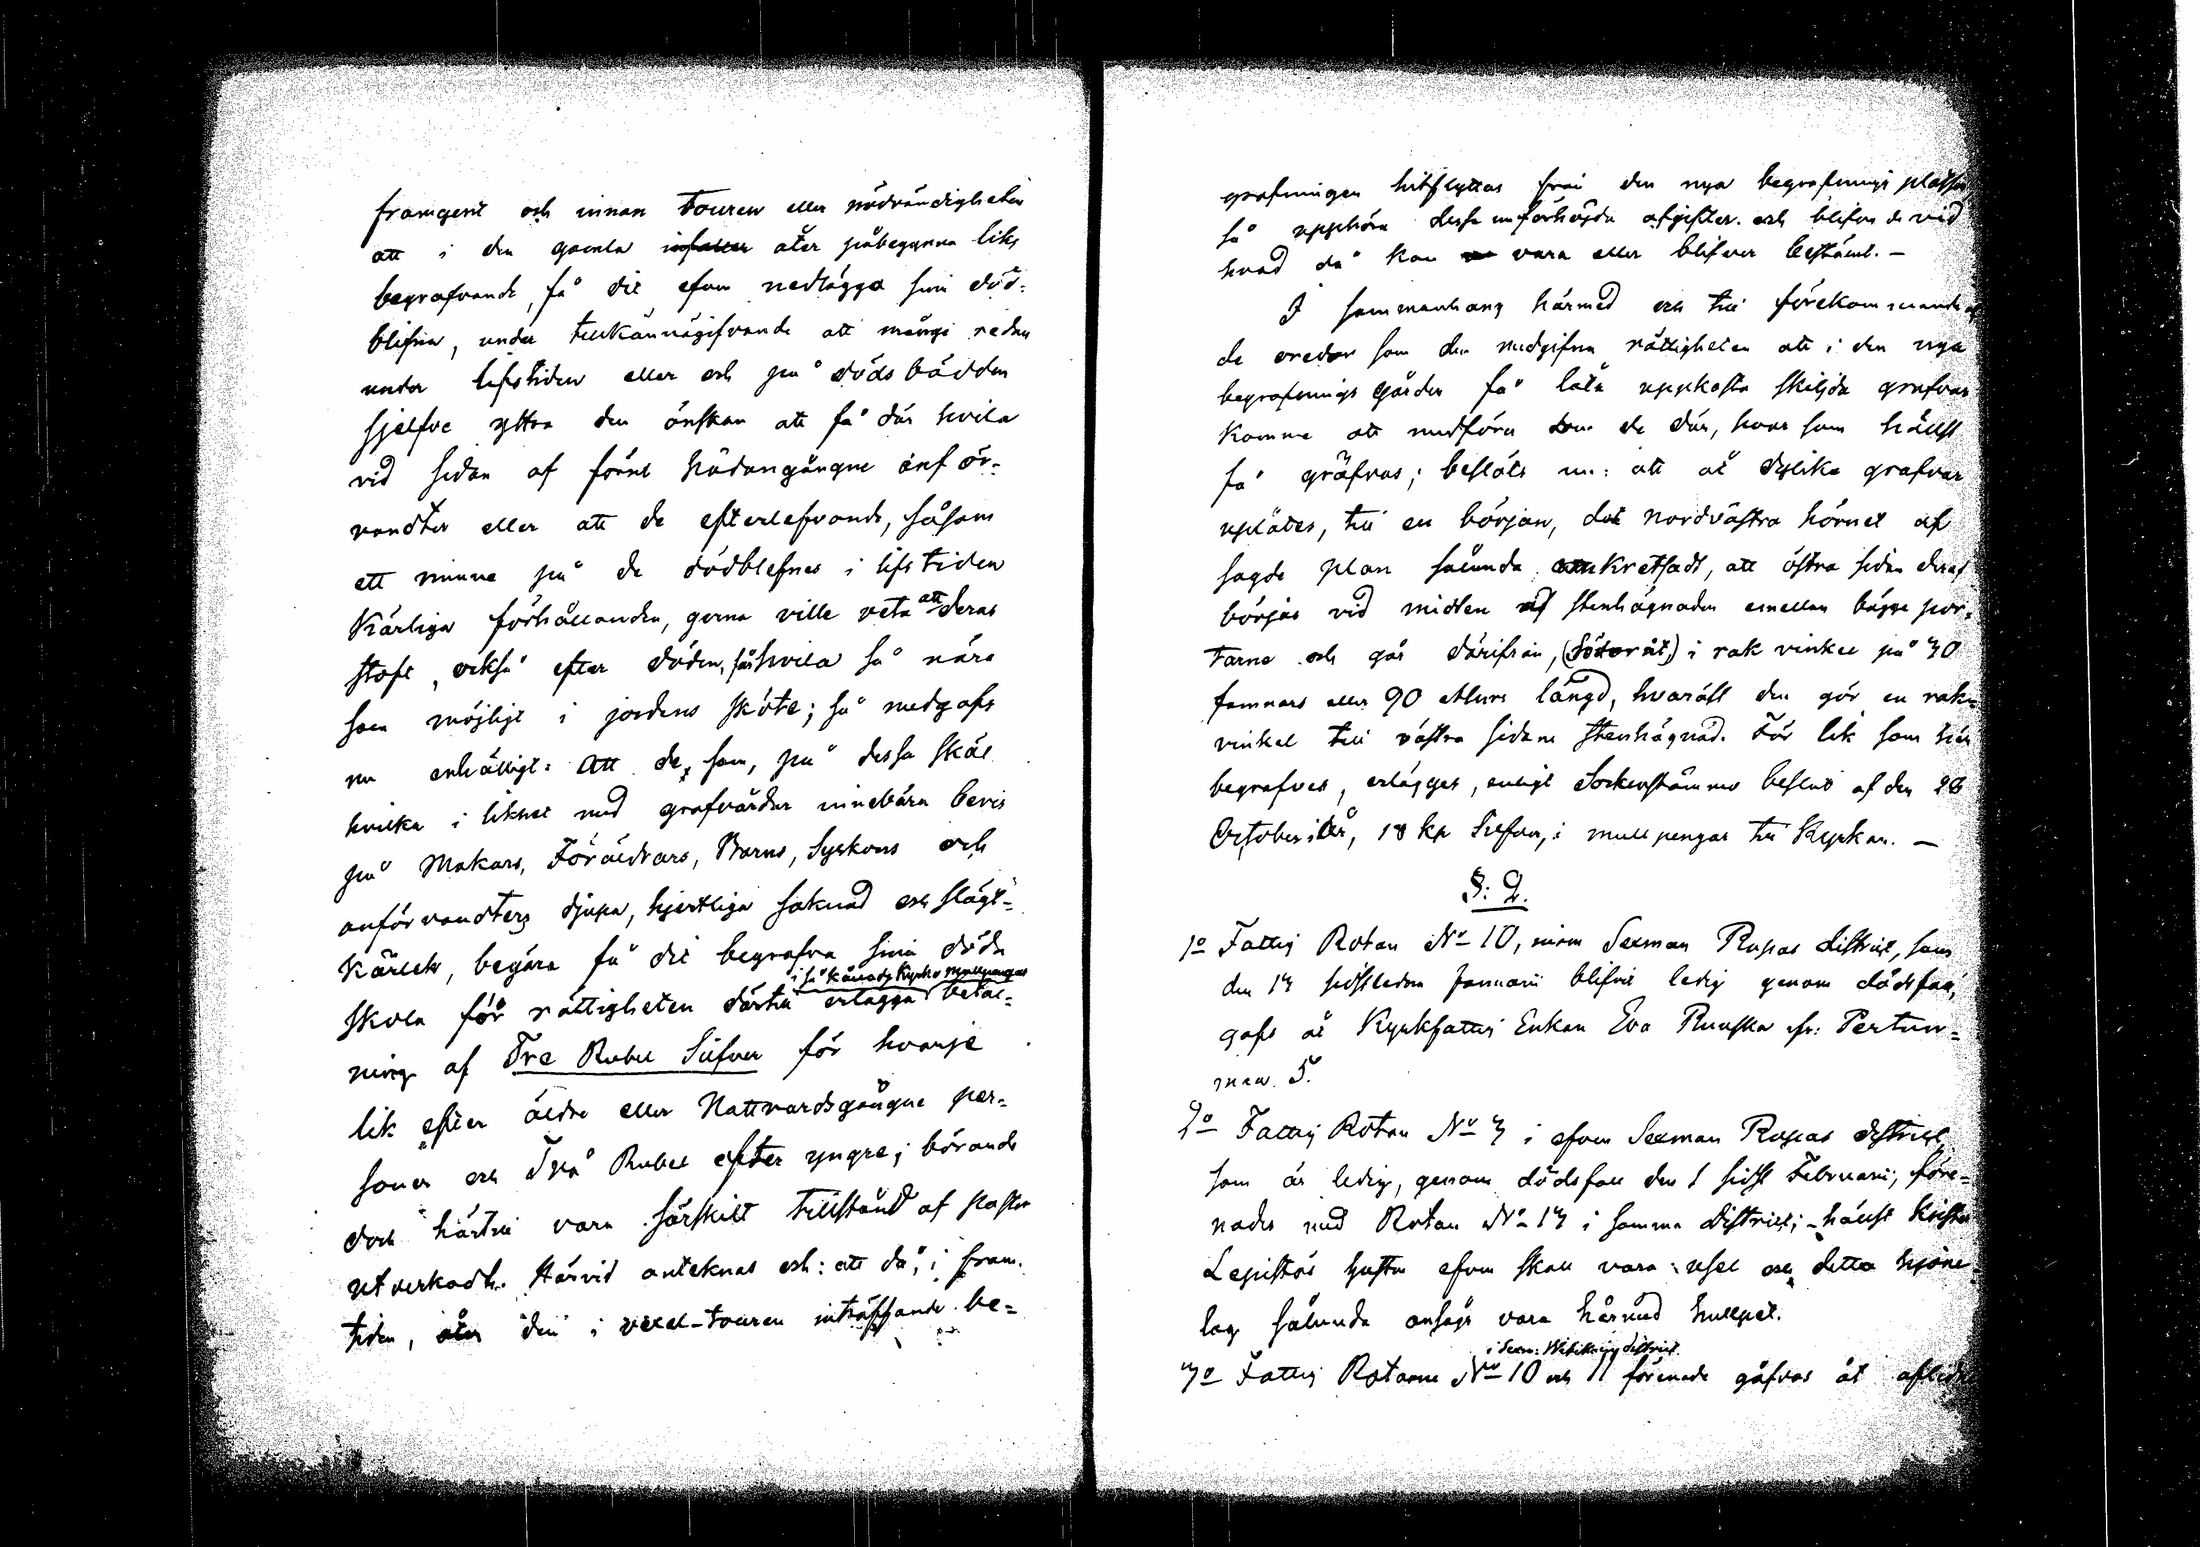 framgent och innan Touren eller nödvändigheten
att i den gamla infaller åter påbegynna lik-
begrafvande, få dit äfven nedlägga sine död-
blifna, under tillkännagifvande att mångi redan
under lifstiden eller och på dödsbädden
sjelfve yttra den önskan att få där hvila
vid sidan af förut hädangångne anför-
vandter eller att de efterlefvande, såsom
ett minne på de dödblefnes i lifstiden
kärliga förhållanden, gerna ville veta att deras
stoft, också efter döden, får hvila så nära
som möjligt i jordens sköte; så medgafs
nu enhälligt: att de, som, på dessa skäl
hvilka i likhet med grafvårdar innebära bevis
på Makars, Föräldrars, Barns, Syskons och
anförvandters djupa, hjertliga saknad och slägt-
kärlek, begära få dit begrafva sina döda
i så kallade Kyrko Mullpengar
skola för rättigheten därtill erlägga betal-
ning af Tre Rubel Silfver för hvarje
lik efter äldre eller Nattvardsgångne per-
soner och Två Rubel efter yngre; börande
dock härtill vara särskilt tillstånd af Pastor
utverkadt. Härvid anteknas och: att då, i fram-
tiden, åter den i vexel-touren inträffande be-
grafningen hitflyttas från den nya begrafnings platsen
så upphöra dessa förhöjda afgifter och blifva de vid
hvad då kan vara eller blifver bestämt. —
I sammanhang härmed och till förekommande af
de oredor som den medgifna rättigheten att i den nya
begrafnings gården få låta uppkasta skiljda grafvar
komme att medföra de där, hvar som hälst
få gräfvas; beslöts nu: att åt dylika grafvar
uplåtes, till en början, det nordvästra hörnet af
sagde plan sålunda kretsadt, att östra sidan deraf
börjas vid midten af stenhägnaden emellan bägge por-
tarne och går därifrån, (Söderåt) i rak vinkel på 30
famnars eller 90 alnars längd, hvaräst den gör en rak-
vinkel till västra sidans stenhägnad. För lik som här
begrafves, erlägges, enligt Sockenstämmo beslut af den 28
October i år, 18 kp Silfver, i mullpengar till Kyrkan. —
§: 2.
1o Fattig Rotan No 10, inom Sexman Rupas district, som
den 13 sidstledne Januarii blifvit ledig genom dödsfall,
gafs åt Kyrkfattig Enkan Eva fr: Pertun-
maa. 5.
2o Fattig Rotan No 3 i äfven Sexman Rupas district,
som är ledig, genom dödsfall den 1 sidst Februarii, före-
nades med Rotan No 13 i samma district; hälst
Lepistös hustru äfven skall vara usel och detta hjone-
lag sålunda ansågs vara härmed hullpet.
i Sexm: district
3o Fattig Rotarne No 10 och 11 förenade gåfvos åt aflidne